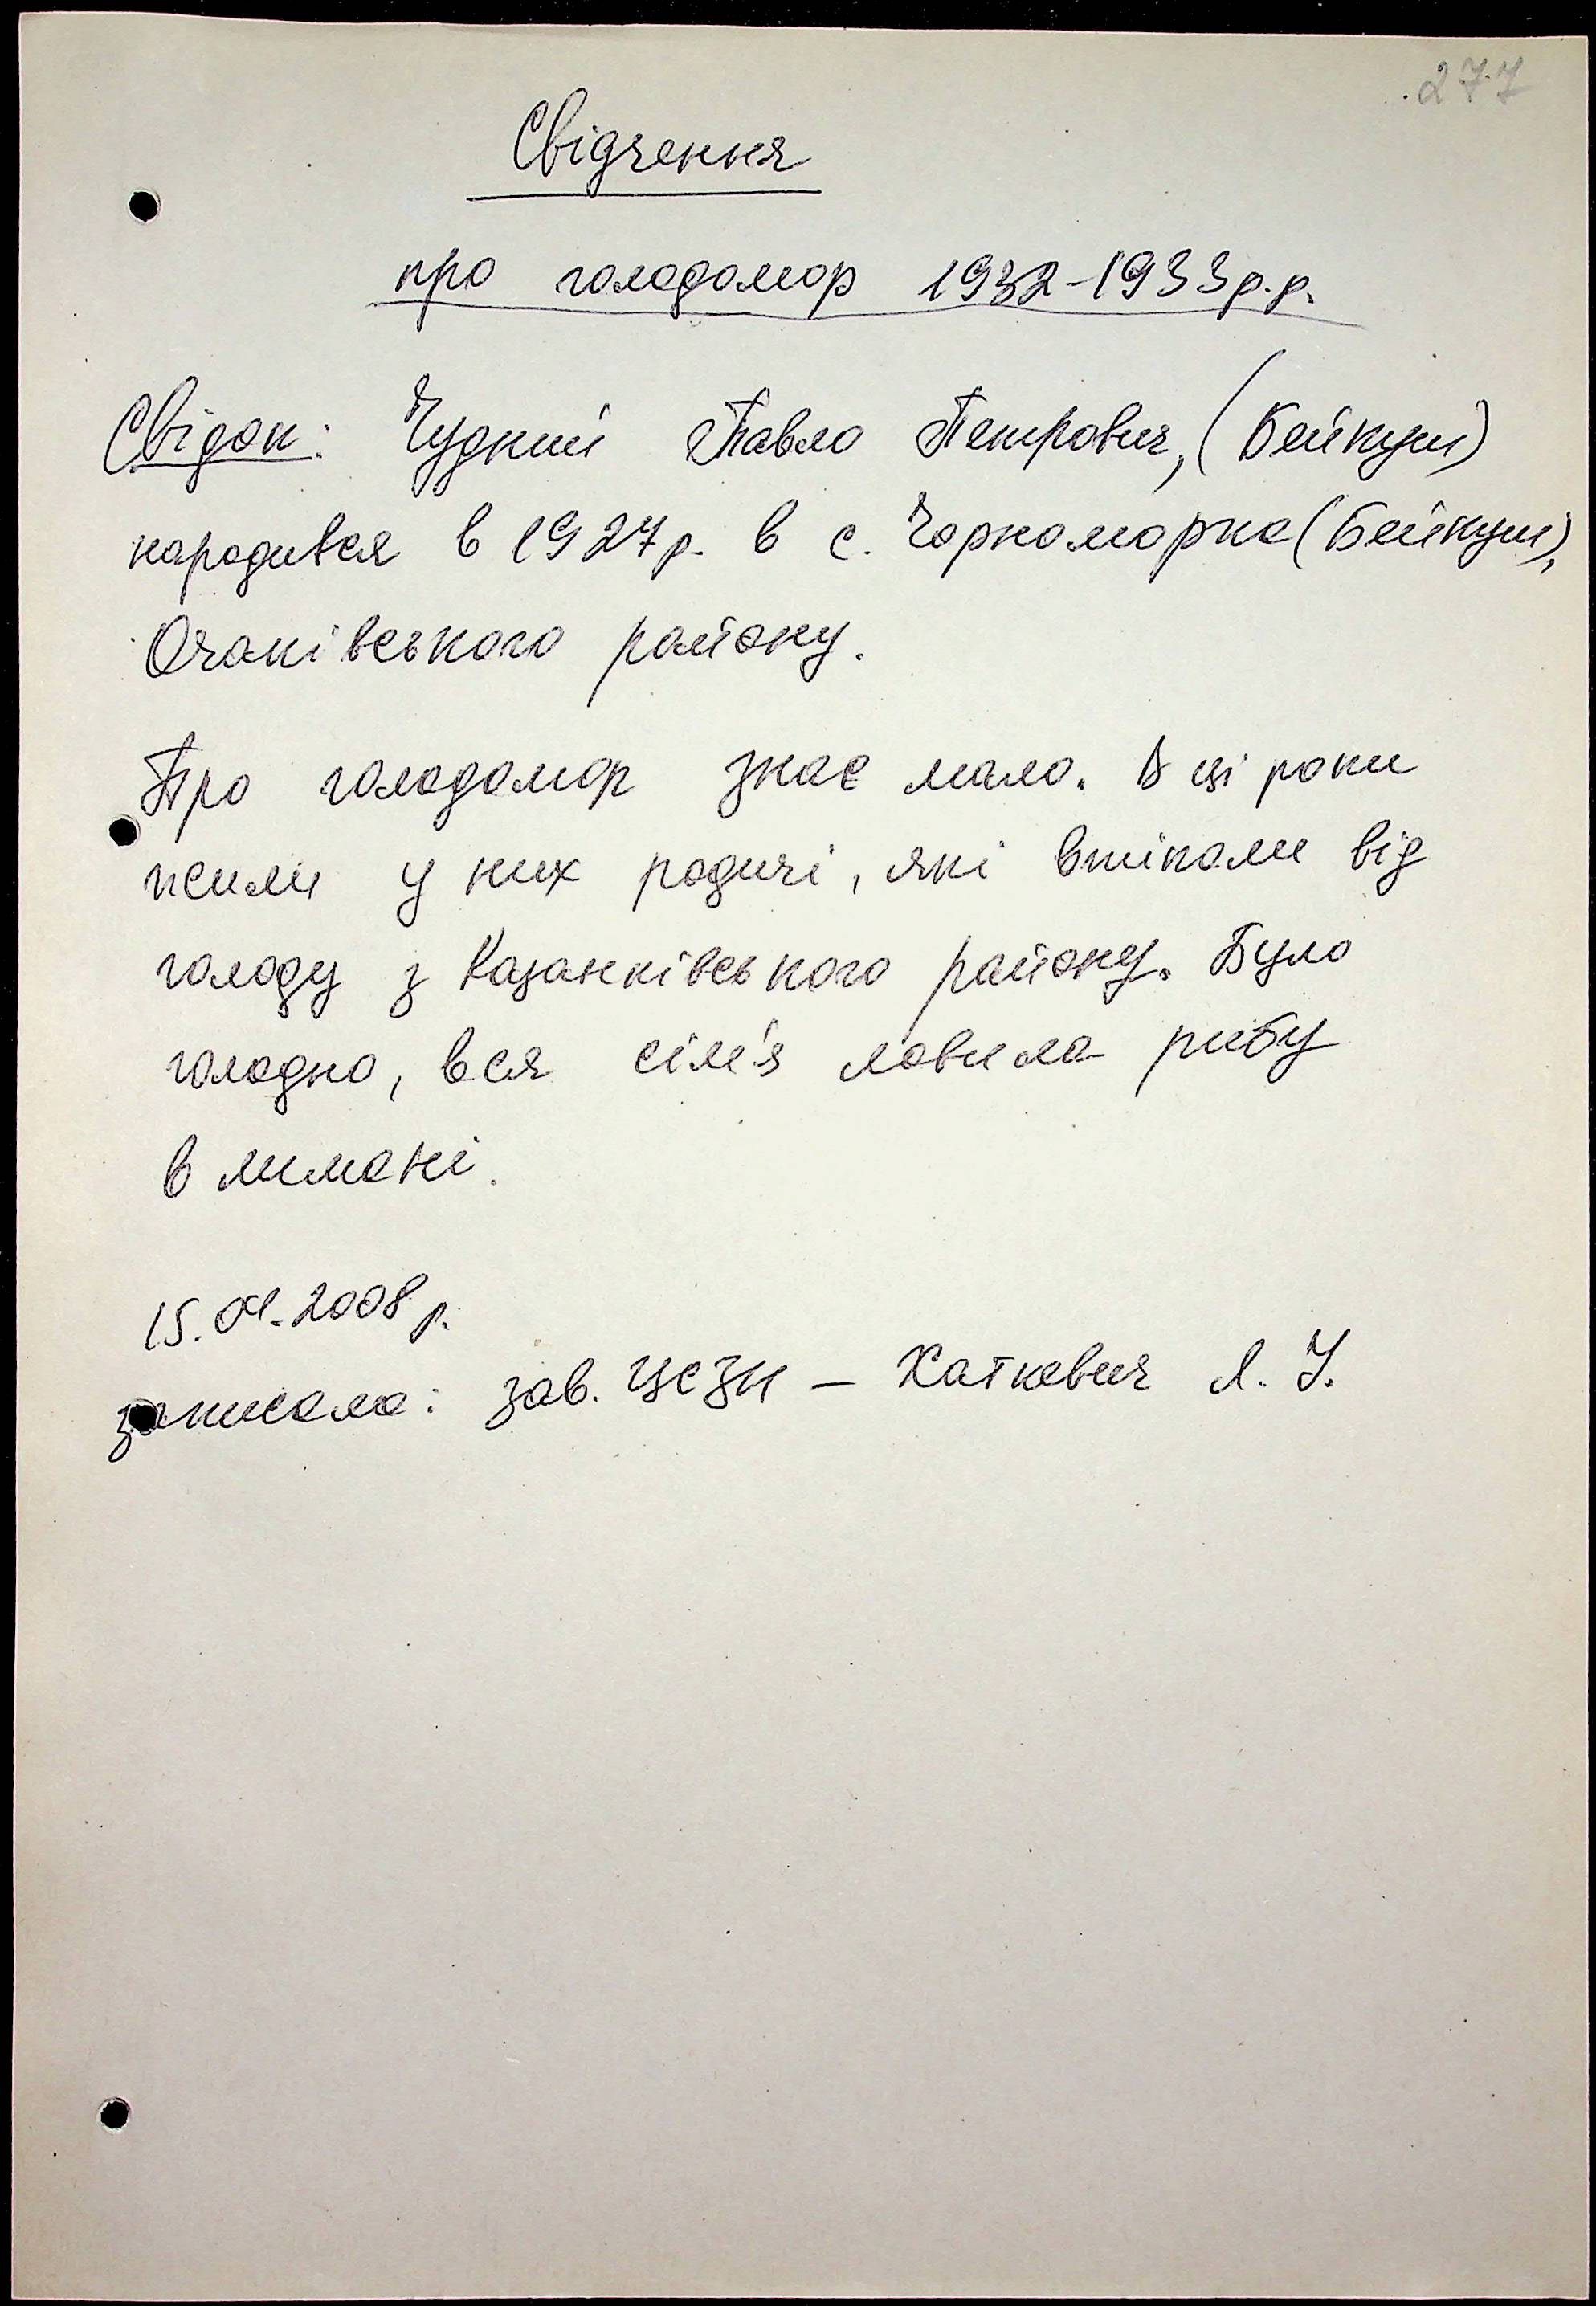 277
Свідчення
про голодомор 1932-1933р.р.
Свідок: Чудний Павло Петрович, (Бейкуш)
народився в 1927р. в с. Чорноморка (Бейкуш),
Очаківського району.
Про голодомор знає мало. В ці роки
жили у них родичі, які втікали від
голоду з Казанківського району. Було
голодно, вся сім'я ловила рибу
в лимані.
15.04.2008 р.
записала: зав. ЦСЗН – Хаткевич Л. У.